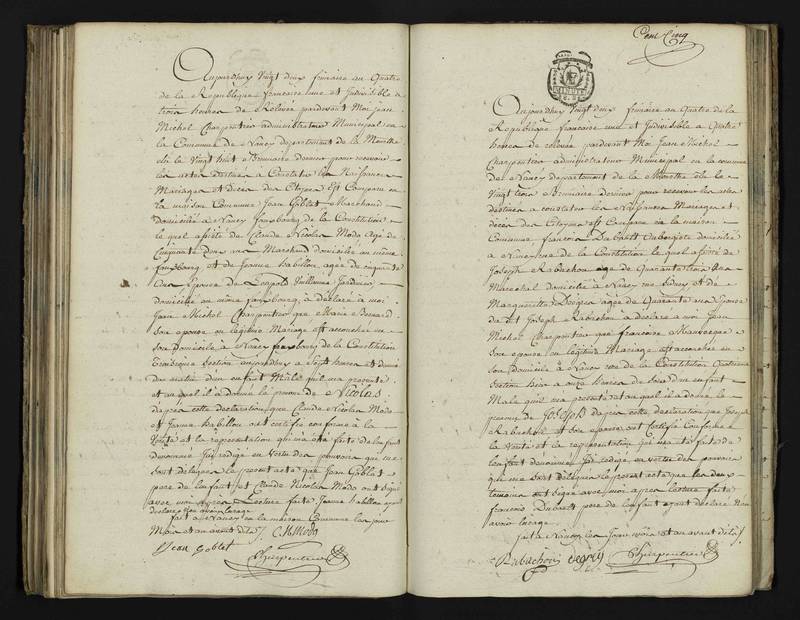 Aujourdhuy Vingt deux frimaire an Quatre
de la Republique francaise une et Indivisible a
trois heures de Relevée pardevant Moi jean
Michel Charpentier administrateur Municipal en
la Commune de Nancy departement de la Meurthe
elu le Vingt huit Brumaire dernier pour recevoir
les actes destinés a Constater les Naissances
Mariages et decès des Citoyens Est Comparu en
la maison Commune Jean Goblet Marchand
domicilié a Nancy fauxbourg de la Constitution
le quel assisté de Claude Nicolas Moda Agé de
Cinquante deux ans Marchand domicilié au même
fauxbourg et de Jeanne Babillon agée de cinquante
ans Epouse de Leopold Vuillaume Jardinier
domicilié au même fauxbourg, a déclaré à moi
Jean Michel Charpentier que Marie Bernard
son epouse en legitime Mariage est accouchée en
son domicile a Nancy fauxbourg de la Constitution
Troisieme Section aujourdhuy a Sept heures et demie
du matin d'un enfant Mâle qu'il m'a presenté
et auquel il a donné le prenom de Nicolas
dapres cette declaration que Claude Nicolas Moda
et Jeanne Babillon ont certifié conforme à la
Verité et la representation qui m'a été faite de l'enfant
denommé J'ai redigé en Vertu des pouvoirs qui me
sont delegués le present acte que Jean Goblet
pere de l'enfant et Claude Nicolas Moda ont signé
avec moi apres Lecture faite Jeanne Babillon ayant
declaré n'en avoir l'usage
fait a Nancy en la maison Commune les jour
Mois et an avant dits
C. N. Moda
Jean Goblet
Charpentier
Cent Cinq
Aujourdhuy Vingt deux frimaire an Quatre de la
Republique francaise une et Indivisible a Quatre
heures de relevée pardevant Moi Jean Michel
Charpentier administrateur Municipal en la commune
de Nancy departement de la Meurthe élu le
Vingt huit Brumaire dernier pour recevoir les actes
destinés a constater les Naissances Mariages et
décès des Citoyens est Comparu en la maison
Commune francois Aubergiste domicilié
a Nancy rue de la Constitution le quel assisté de
Joseph Rabachon agé de Quarante trois ans
Marechal domicilié a Nancy rue et de
Marguerite agée de Quarante ans Epouse
du dit Joseph Rabachon a déclaré a moi Jean
Michel Charpentier que francoise
son epouse en legitime Mariage est accouchée en
son Domicile a Nancy rue de la Constitution Quatrieme
Section hier a onze heures du soir d'un enfant
Male qu'il m'a presenté et auquel il a donné le
prenom de Joseph dapres cette declaration que Joseph
Rabachon et son epouse ont Certifié Conforme a
la Verité et la representation qui m'a été faite de
l'enfant denommé J'ai redigé en vertu des pouvoirs
qui me sont délegués le present acte que les deux
temoins ont signé avec moi apres lecture faite
francois pere de l'enfant ayant declaré n'en
avoir l'usage.
fait a Nancy les Jour mois et an avant dits
Rabachon
Charpentier